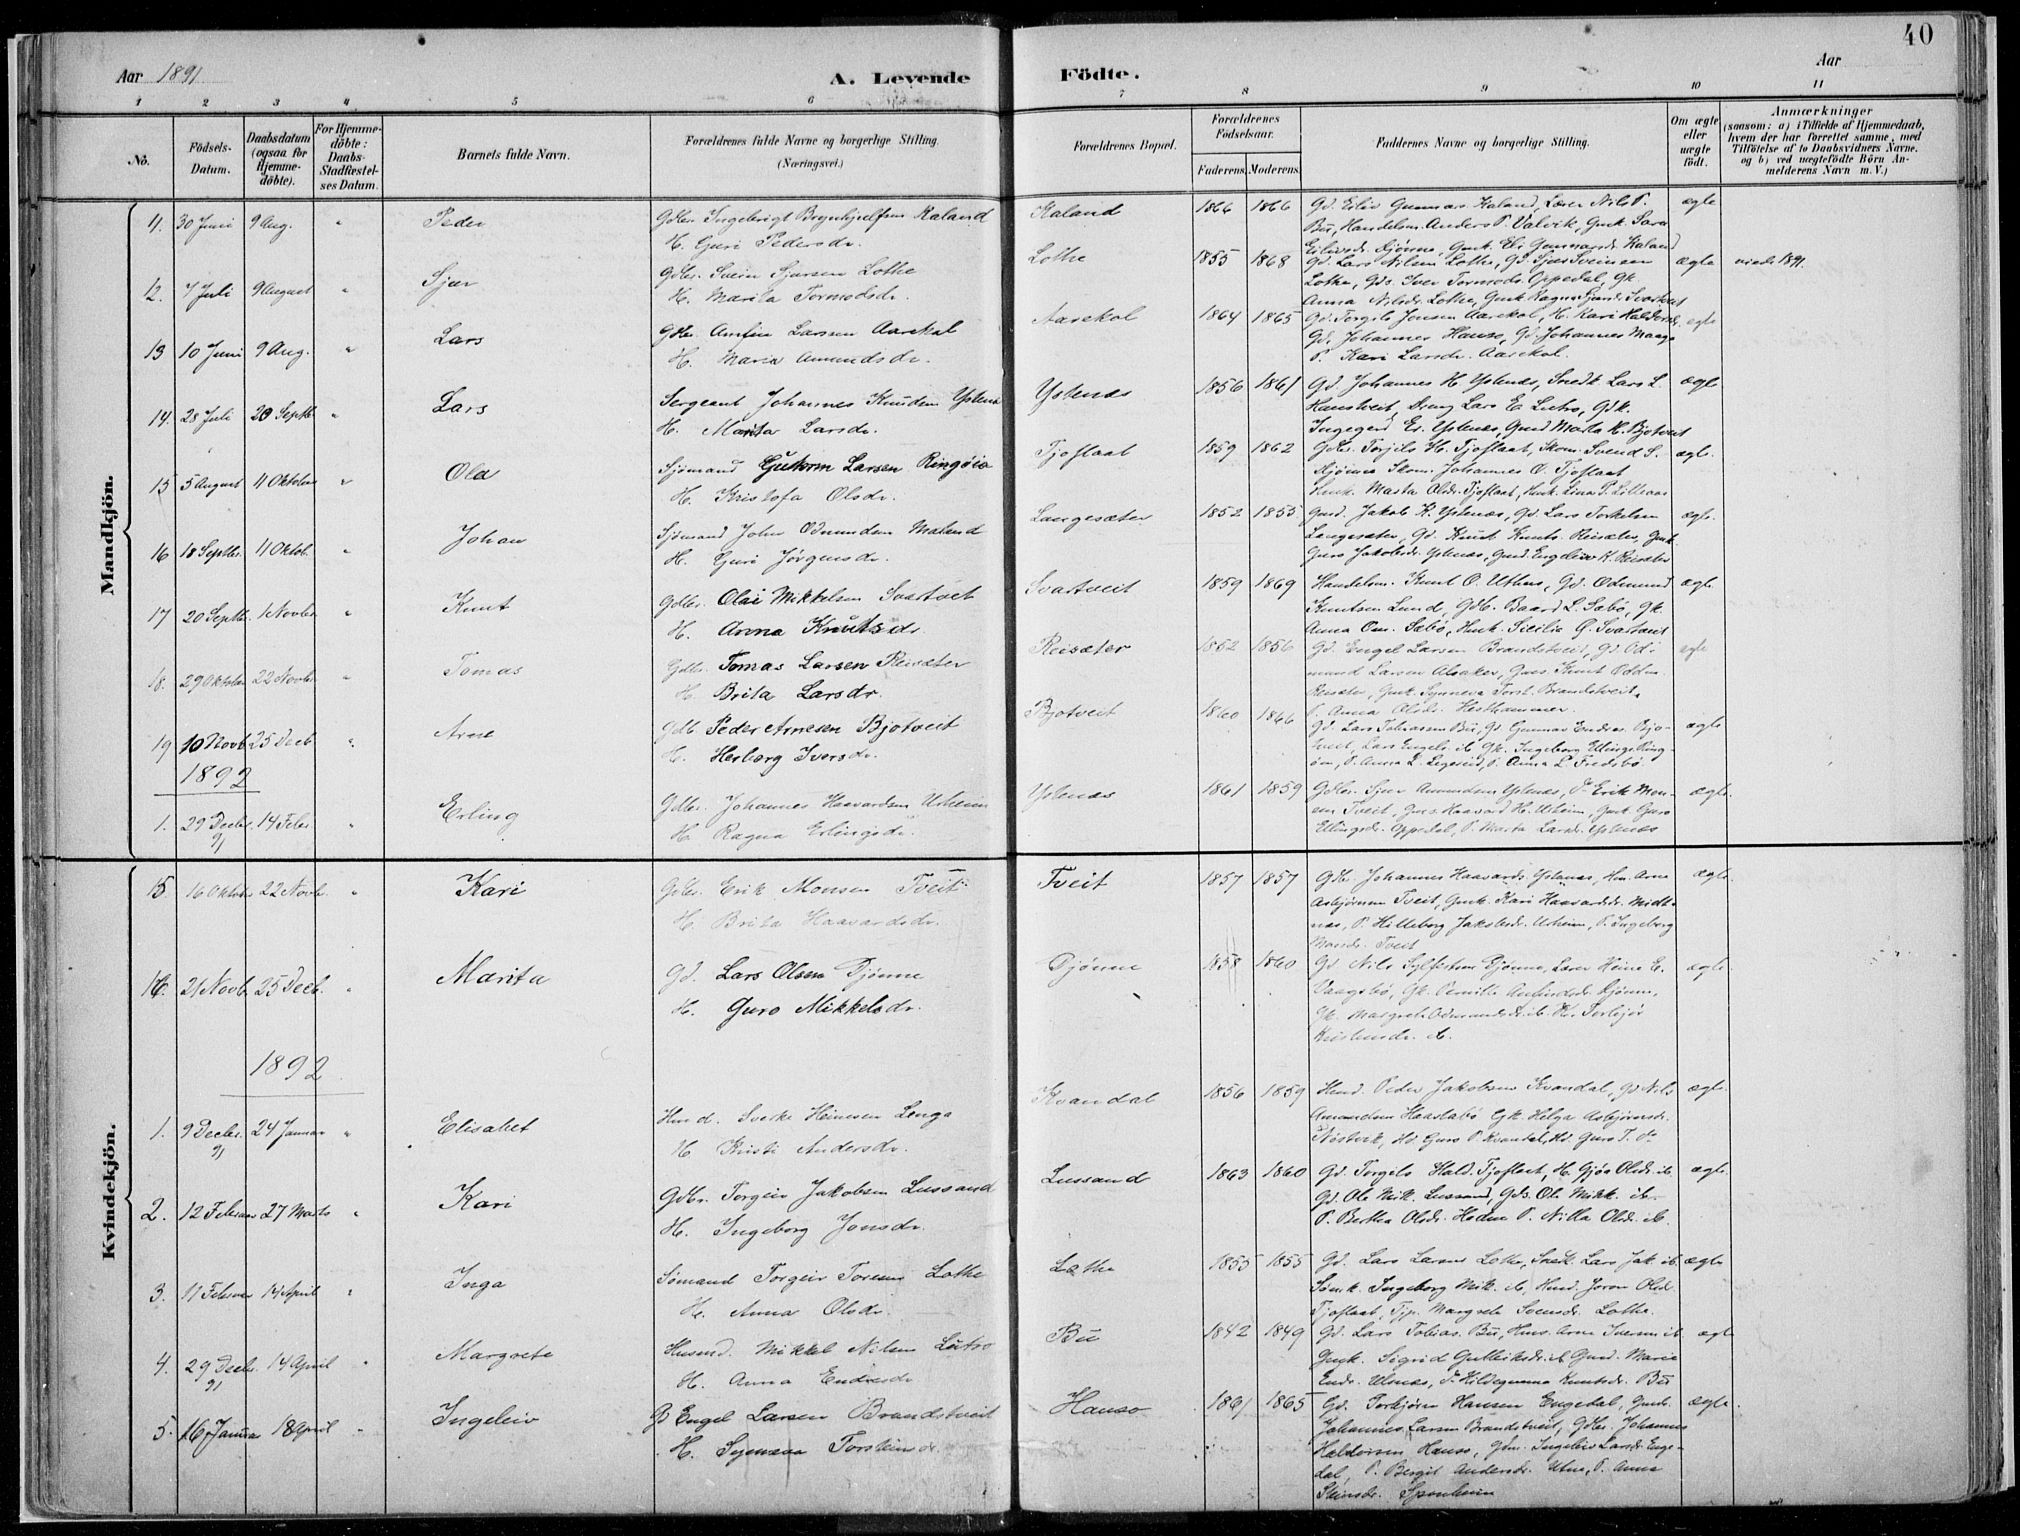 40
Aar 1891
A. Levende
Födte.
Aar
1 2 3 4 5 6 7 8 9 10 11
No.
Födsels-
Datum.
Daabsdatum
(ogsaa for
Hjemme-
döbte).
For Hjemme-
döbte:
Daabs-
Stadfæstel-
ses Datum.
Barnets fulde Navn.
Forældrenes fulde Navne og borgerlige Stilling.
(Næringsvei.)
Forældrenes Bopæl.
Forældrenes
Födselsaar.
Faderens. Moderens.
Faddernes Navne og borgerlige Stilling.
Om ægte
eller
uægte
födt.
Anmærkninger
(saasom: a) i Tilfælde af Hjemmedaab,
hvem der har forrettet samme, med
Tilföielse af to Daabsvidners Navne.
og b) ved uægtefödte Börn An-
melderens Navn m. V.)
Mandkjön.
11. 30 Juni 9 Aug. " Peder
Gdbr. Ingebrigt Brynhjelfsen Kaland
H. Guri Pedersdr.
Kaland 1866 1866
Gd. Eiliv Gunnars Kaland, Lærer Nils P.
Bu, Handelsm. Anders P. Valvik, Gmk. Sara
Eilivsdr. Djønne, Gmk. Eli Gunnarsdr. Kaland
ægte
12. 7 Juli 9 August " Sjur
Gdbr. Svein Sjursen Lothe
H. Marita Tormodsdr.
Lothe 1855 1868
Gd. Lars Nilsen Lothe, Gd. Sjur Sveinsen
Lothe, Gds. Iver Tormods. Oppedal, Gk.
Anna Nilsdr. Lothe, Gmk. Ragna Sjursdr. Svartveit
ægte
13 10 Juni 9 Aug. " Lars
Gdbr. Amfin Larsen Aarekol
H. Maria Amundsdr.
Aarekol 1864 1865
Gd. Torgils Jonsen Aarekol, H. Kari Haldorsdr.
Gd. Johannes Hauso, Gd. Johannes Maage
P. Kari Larsdr. Aarekol.
ægte
14. 28 Juli 20 Septb. " Lars
Sergeant Johannes Knudsen Ystenes
H. Marita Larsdr.
Ystenæs 1856 1861
Gd Johannes H Ystenæs, Snedk Lars L.
Hanstveit, Dreng Lars E. Lutro, Gdk.
Ingegerd Er. Ystenæs, Gmd Marta K. Bjotveit
ægte
15 5 August 11 Oktober " Ola
Sjømand Guttorm Larsen Ringøia
H. Kristofa Olsdr.
Tjoflaat 1859 1862
Gdbr. Torjils H. Tjoflaat, Skom. Svend S.
Djønne Skom. Johannes O. Tjoflaat
Hmk. Marta Olsdr. Tjoflaat, Hmk. Lina P. Lilleaas
ægte.
16 18 Septbr. 11 Oktob. " Johan
Sjømand John Odmundsen Maland
H. Guri Jørgensdr.
Langesæter 1852 1855
Gmd. Jakob K. Ystenæs, Gd. Lars Torkelsen
Langesæter, Gd. Knut Knuts. Reisæter, Gmk
Guro Jakobsdr. Ystenæs, Gmd. Engeleiv K. Reisæter
ægte.
17 20 Septb. 1 Novber " Knut
Gdbr. Olai Mikkelsen Svartveit
H. Anna Knutsdr.
Svartveit 1859 1869
Handelsm. Knut O. Uthus, Gd. Odmund
Knutsen Lund, Gdb. Baard L. Sæbø, Gk.
Anna Om. Sæbø, Hmk. Sicilia G. Svartveit
ægte
18. 29 Oktober 22 Novber " Tomas
Gdbr. Tomas Larsen Reisæter
H. Brita Larsdr.
Reisæter 1852 1856
Gd. Engel Larsen Brandstveit, Gd. Od-
mund Larsen Alsaker, Gms. Knut Oddm.
Reisæter, Gmk. Synneva Torst. Brandstveit,
P. Anna Olsdr. Hesthammer.
ægte
19 10 Novb. 25 Decb. " Arne
Gdb. Peder Arnesen Bjotveit
H. Herborg Iversdr.
Bjotveit 1860 1866
Gd. Lars Johansen Bu, Gd Gunnar Endres. Bjo-
tveit, Lars Engels. ib. Gk. Ingeborg Ellings. Ring-
øen, P. Anna L. Legereid, P. Anna L. Fredsbø
ægte
1892
1. 29 Decbr. 91 14 Febr. " Erling
Gdbr. Johannes Haavardsen Utheim
H. Ragna Erlingsdr.
Ystenæs 1861 1859
Gdbr. Sjur Amundsen Ystenæs, Do Erik Mon-
sen Tveit, Gms Haavard H. Utheim, Gmk Guro
Ellingsdr. Oppedal, P. Marta Larsdr. Ystenæs
ægte.
Kvindekjön.
15 16 Oktober 22 Novb. " Kari
Gdbr. Erik Monsen Tveit
H. Brita Haavardsdr.
Tveit 1857 1857
Gdbr. Johannes Haavards. Ystenæs, Hm. Arne
Asbjørnsen Tveit, Gmk. Kari Haavardsdr. Midt-
næs, P. Hilleborg Jakobsdr. Utheim, P. Ingeborg
Monsdr. Tveit
ægte
16. 21 Novb. 25 Decb. " Marita
Gd. Lars Olsen Djønne
H. Guro Mikkelsdr.
Djønne 1858 1860
Gd Nils Sylfestsen Djønne, Lærer Heine E.
Vaagsbø, Gk. Pernille Amfindsdr. Djønne,
Gk. Margrete Odmundsdr. ib. Torbjør
Kristensdr. ib.
ægte
1892
1. 9 Decbr. 91 24 Januar " Elisabet
Hmd. Sverke Heinesen Lenga
H Kristi Andersdr.
Kvandal 1856 1859
Hmd. Peder Jakobsen Kvandal, Gd. Nils
Amundsen Haastabø Gk. Helga Asbjørnsdr.
Nestvik, Hd Guro P. Kvandal, Hd. Guro T. do
ægte
2. 12 Februar 27 Marts " Kari
Gdbr. Torgeir Jakobsen Lussand
H. Ingeborg Jonsdr.
Lussand 1863 1860
Gd. Torgils Hald. Tjoflaat, H. Gjøa Olsdr. ib.
Gd. Ole Mik. Lussand, Gds. Ole Mikk. ib.
P. Bertha Olsdr. P. Nilla Olsdr. ib.
ægte
3. 11 Februar 14 April " Inga
Sømand Torgeir Toresen Lothe
H. Anna Olsdr.
Lothe 1855 1855
Gd. Lars Larsen Lothe, Snedk. Lars Jak. ib.
Sømk. Ingeborg Mik. ib, Hmd. Joron Olsd.
Tjoflaat, Tjp. Margrete Svensdr. Lothe.
ægte
4. 29 Decbr. 91 14 April " Margrete
Husmd. Mikkel Nilsen Lutro
H. Anna Endresdr.
Bu 1842 1849
Gd. Lars Tobias. Bu, Hms. Arne Iversen ib
Gmk. Sigrid Gullieksdr. ib Gmd. Marie
Endr. Ulsnæs, Do Hildegunna Knutsdr. Bu
ægte
5. 16 Januar 18 April " Ingeleiv
G Engel Larsen Brandstveit
H. Synneva Torsteinsdr.
Hauso 1861 1865
Gd. Torbjørn Hansen Engedal, Gmb.
Johannes Larsen Brandstveit, Gdbr. Johannes
Haldorsen Hauso, Gm. Ingeleiv Larsdr. Enge-
dal, P. Bergit Andersdr. Utne, P. Anna
Steinsdr. Sponheim
ægte.